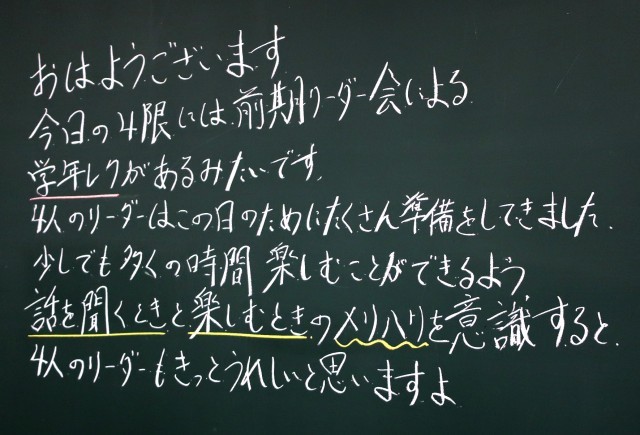 おはようございます
今日の4限には前期リーダー会による
学年レクがあるみたいです。
4人のリーダーはこの日のためにたくさん準備をしてきました。
少しでも多くの時間楽しむことができるよう
話を聞くときと楽しむときのメリハリを意識すると、
4人のリーダーもきっとうれしいと思いますよ